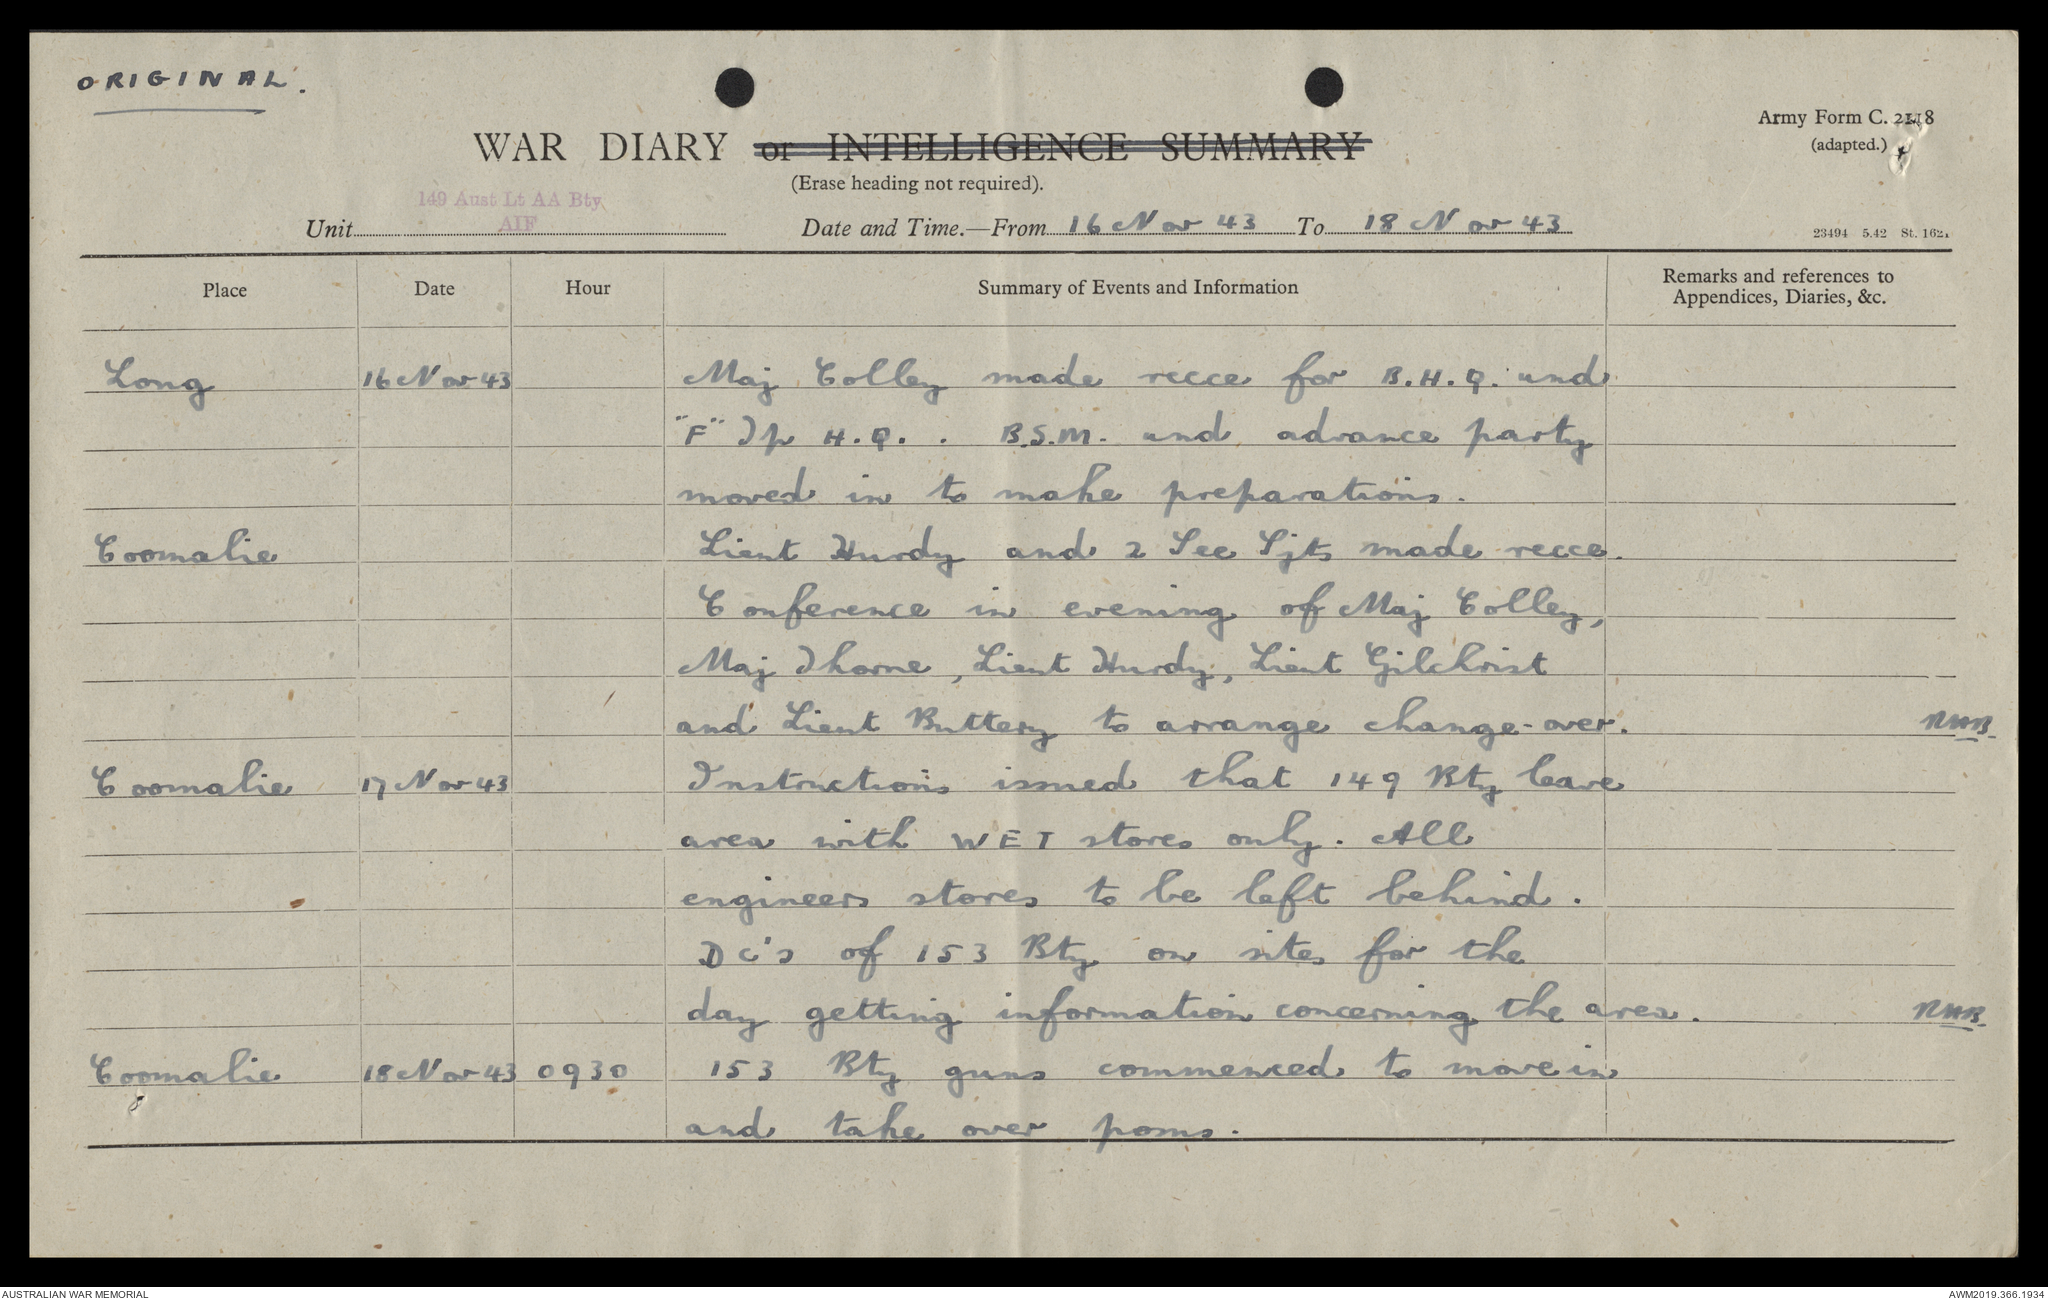 ORIGINAL.
Army Form C. 2118
(adapted.)
WAR DIARY or INTELLIGENCE SUMMARY
(Erase heading not required).
149 Aust Lt AA Bty
AIF
Unit
Date and Time.—From 16 Nov 43 To 18 Nov 43
23494 5.42 St. 1621
Place Date Hour Summary of Events and Information Remarks and references to
Appendices, Diaries, &c.
Long 16 Nov 43 Maj Colley made recce for B.H.Q. and
"F" Tp H.Q. . B.S.M. and advance party
moved in to make preparations.
Coomalie Lieut Hurdy and 2 Sec Sjts made recce.
Conference in evening of Maj Colley,
Maj Thorne, Lieut Hurdy, Lieut Gilchrist
and Lieut Buttery to arrange change-over. RHB.
Coomalie 17 Nov 43 Instructions issued that 149 Bty leave
area with WET stores only. All
engineers stores to be left behind.
DC's of 153 Bty on sites for the
day getting information concerning the area. RHB.
Coomalie 18 Nov 43 0930 153 Bty guns commenced to move in
and take over posns.
AUSTRALIAN WAR MEMORIAL
AWM2019.366.1934